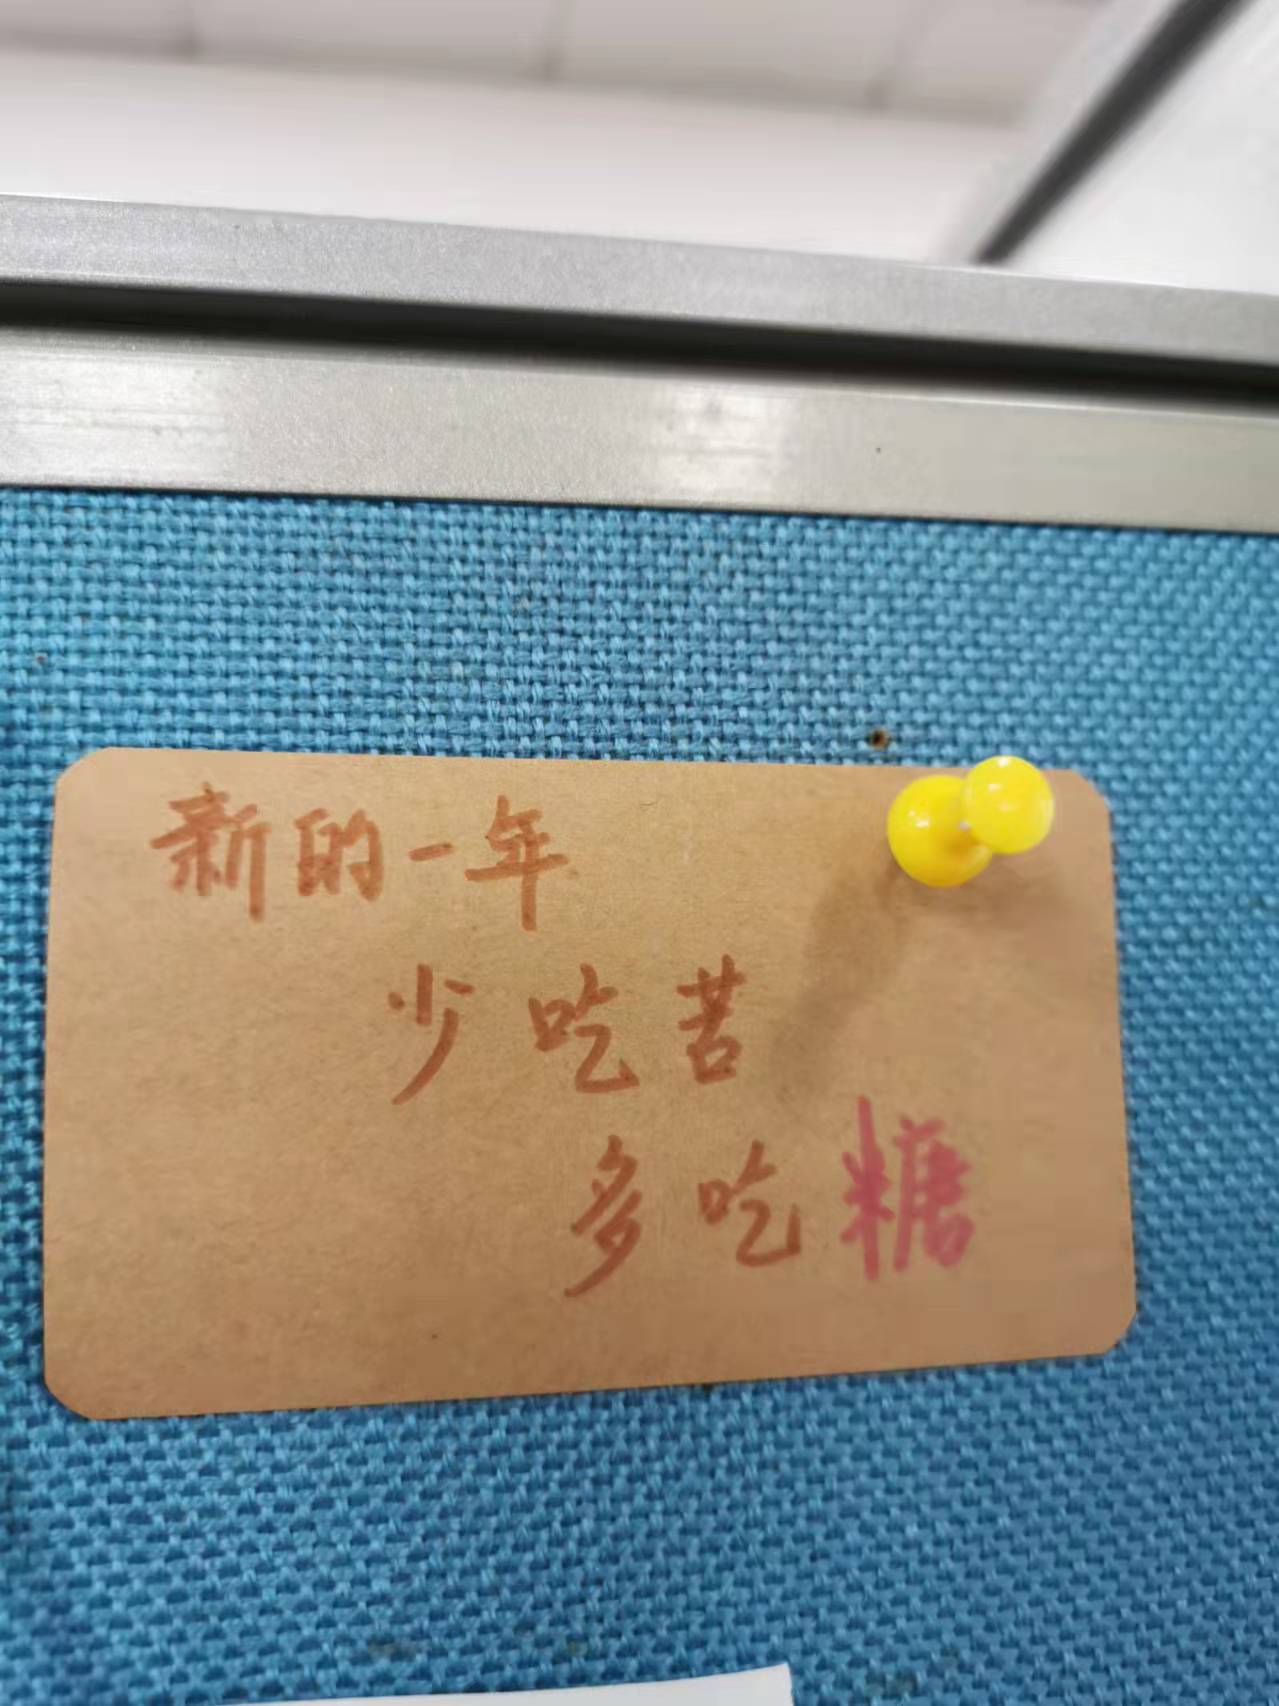 新的一年
少吃苦
多吃糖